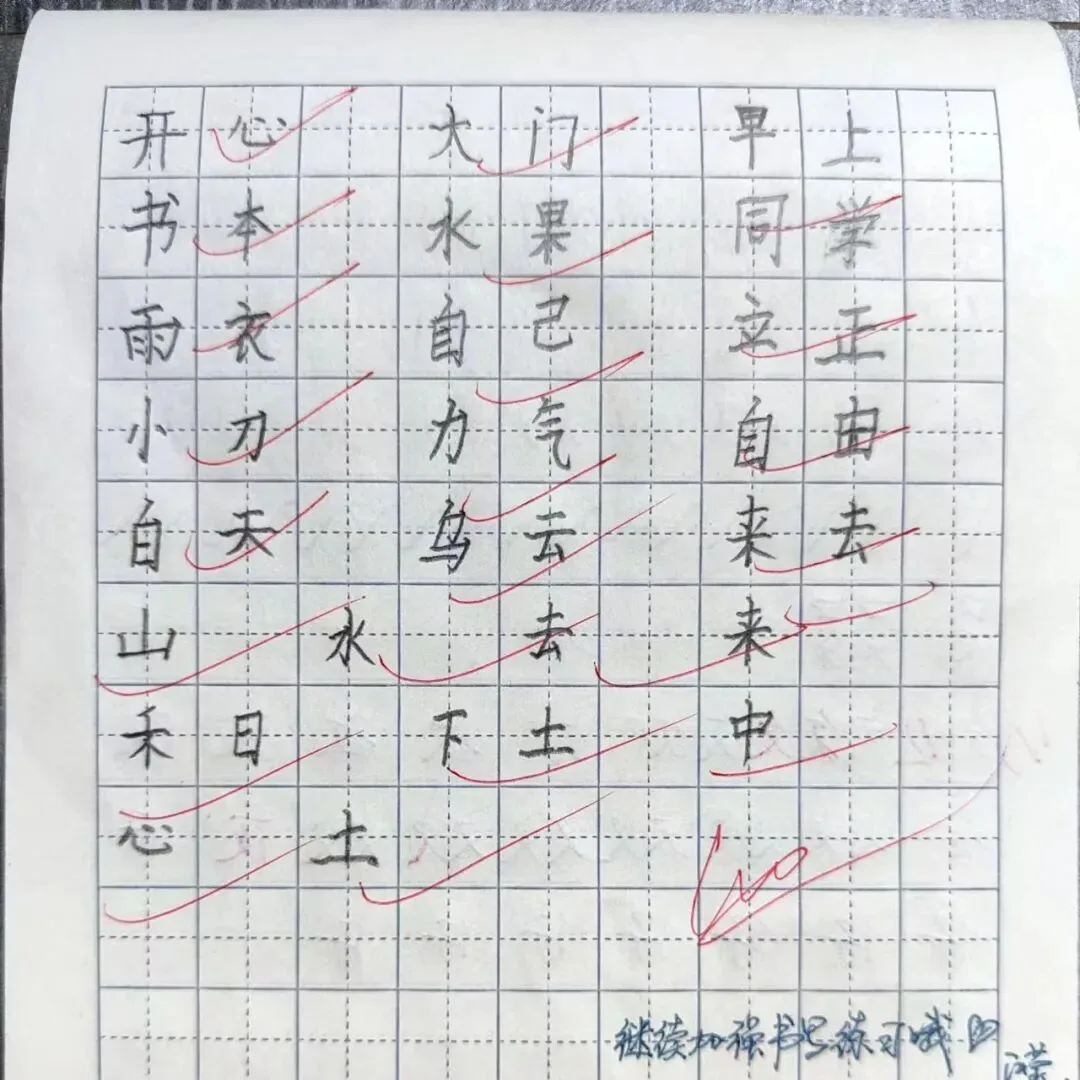 开心 大门 早上
书本 水果 同学
雨衣 自己 立正
小刀 力气 自由
白天 乌云 来去
山 水 去 来
禾 日 下 土 中
心 土
100
继续加强书写练习哦